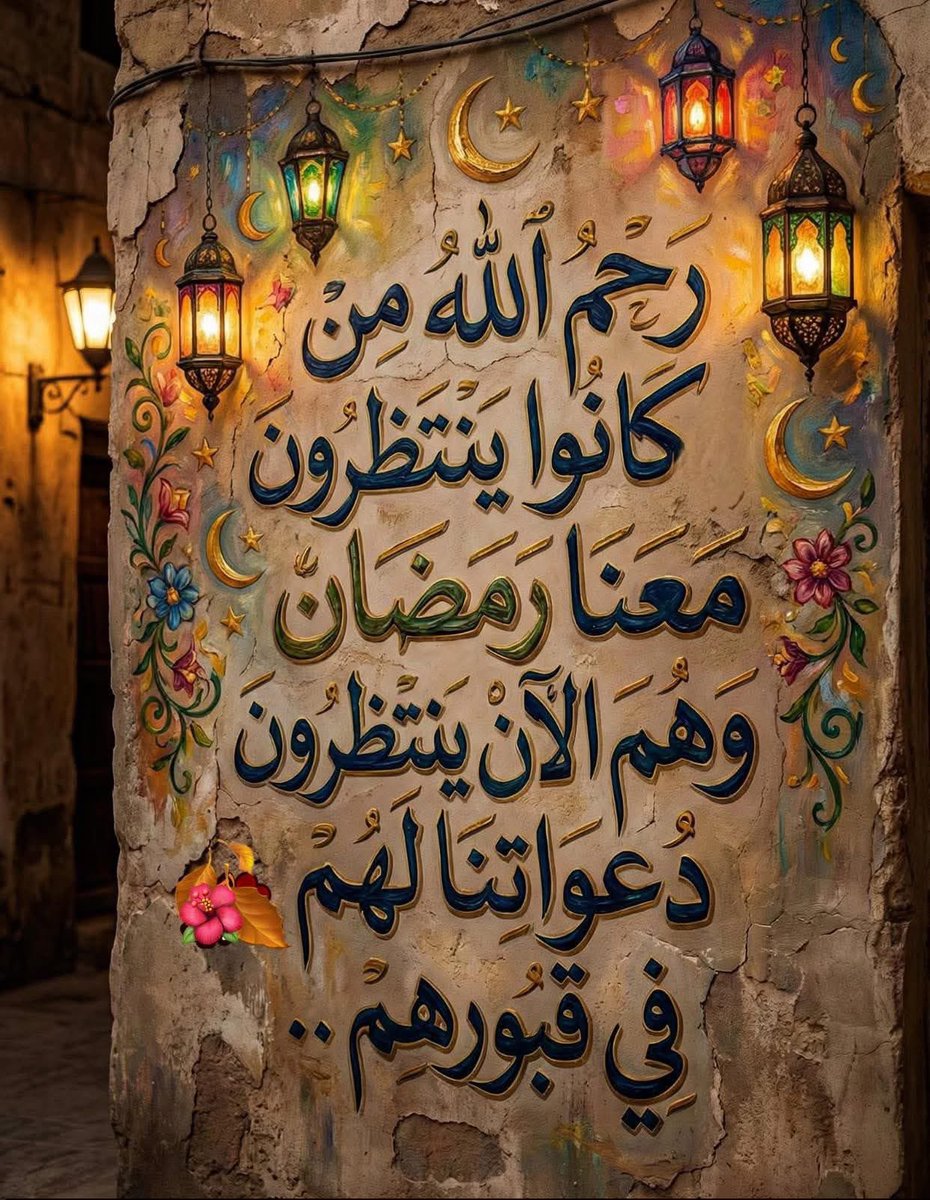 رَحْمُ اللّٰهُ مِنْ
كَانُوا يَنْتَظِرُونَ
مَعَنَا رَمَضَانَ
وَهُمَ الآنْ يَنتْظِرُونَ
دُعَوَاتِنَا لَهُمْ
فِي قُبُورِهِمْ ..